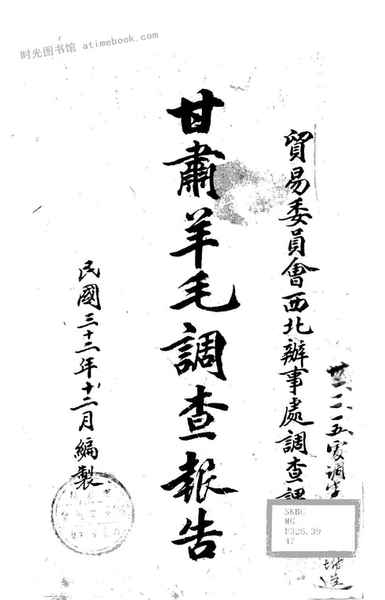 时光图书馆 atimebook.com
貿易委員會西北辦事處調查課
甘肅羊毛調查報告
民國三十二年十二月編製
SKBC
MG
F326.39